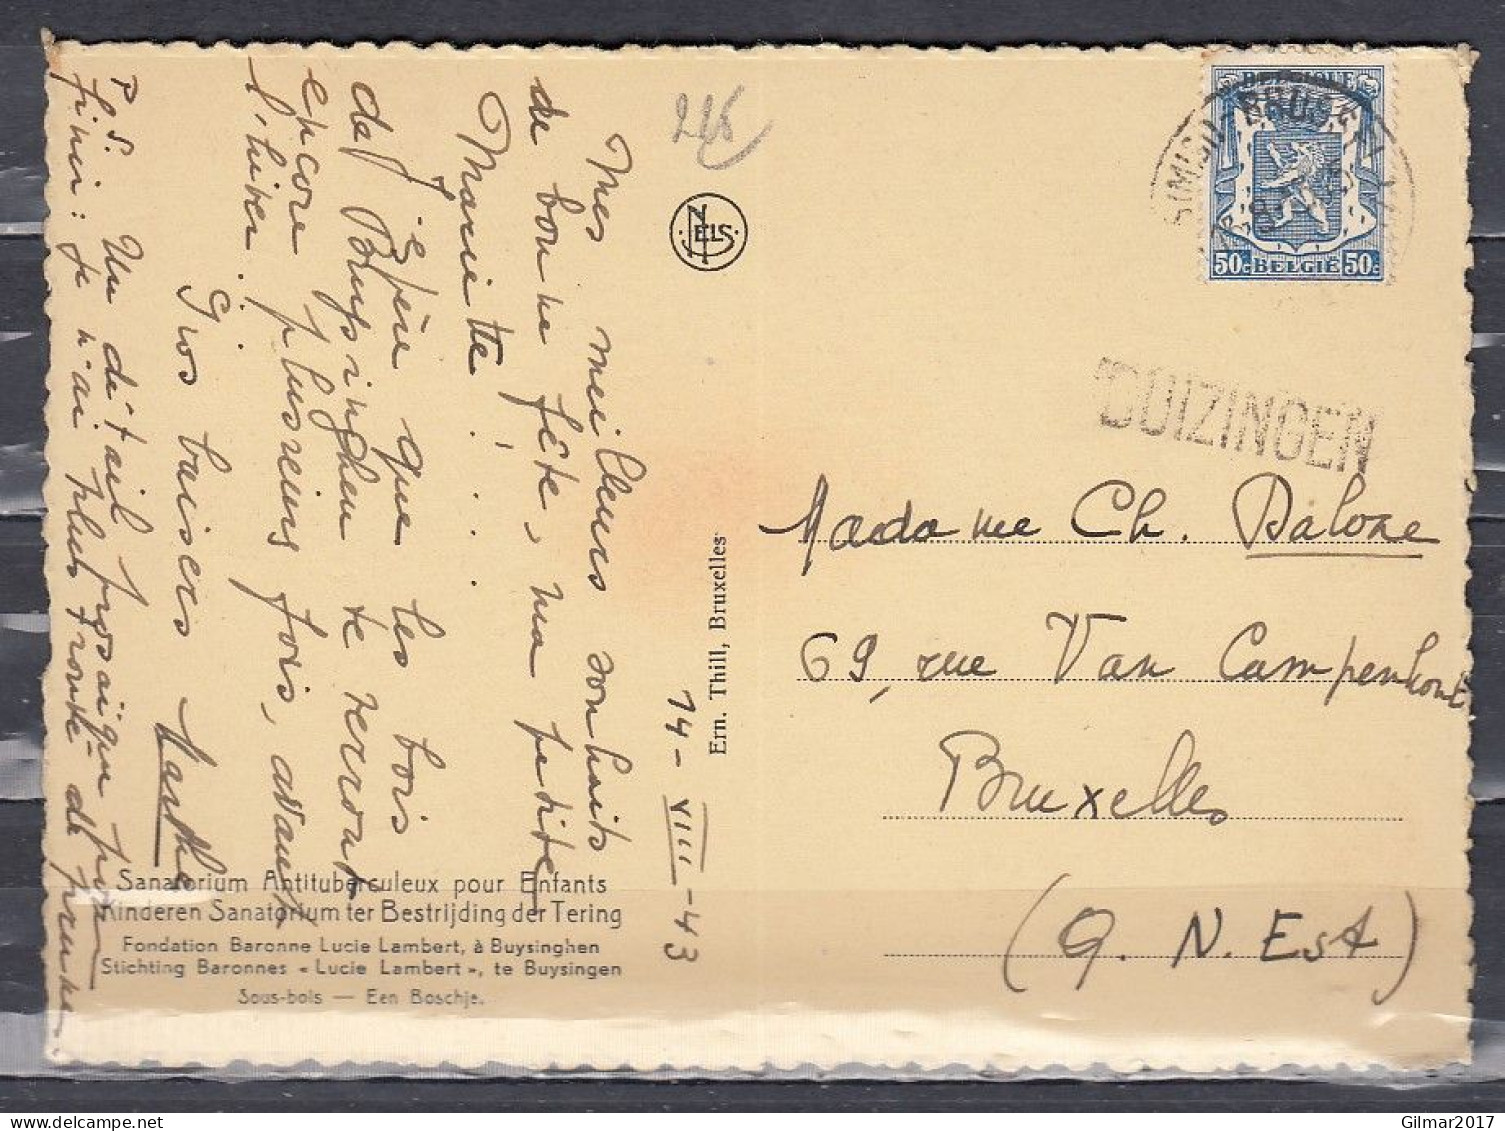 Mes meilleurs souhaits
de bonne fête, ma petite
Mariette! . . .
J'espère que les bois
de Buysinghen te verront
encore plusieurs fois, avant
l'hiver.
Gros baisers
Marthe
P.S. Un détail prosaïque pour
finir: je n'ai plus trouvé de prunes
14-VIII-43
246
NELS
Ern. Thill, Bruxelles
Sanatorium Antituberculeux pour Enfants
Kinderen Sanatorium ter Bestrijding der Tering
Fondation Baronne Lucie Lambert, à Buysinghen
Stichting Baronnes « Lucie Lambert », te Buysingen
Sous-bois — Een Boschje.
BELGIQUE
50c BELGIË 50c
BUIZINGEN
Madame Ch. Dalose
69, rue Van Campenhout
Bruxelles
(Q. N. Est)
Gilmar2017